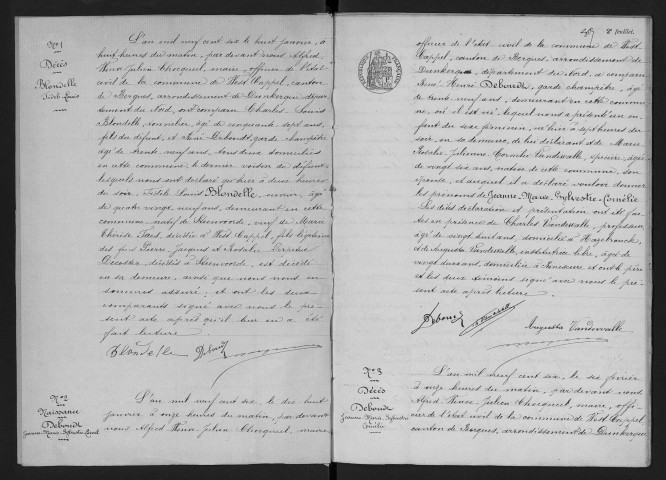 N° 1
Décès
Blondelle
Fidèle Louis
L'an mil neuf cent six le huit janvier, à
huit heures du matin, par devant nous Alfred
Julien Chocquet, maire, officier de l'état
civil de la commune de West Cappel, canton
de Bergues, arrondissement de Dunkerque, dépar-
tement du Nord, ont comparu Charles Louis
Blondelle, âgé de cinquante sept ans
fils du défunt, et René Deboudt, garde champêtre
âgé de trente neuf ans, tous deux domiciliés
en cette commune, le dernier voisin du défunt,
lesquels nous ont déclaré qu'hier à deux heures
du soir, Fidèle Louis Blondelle, âgé
de quatre vingt neuf ans, demeurant en cette
commune, natif de Steenvoorde, veuf de Marie
Thérèse Taes, décédée à West Cappel, fils légitime
des feus Pierre Jacques et Rosalie
décédés à Steenvoorde, est décédé
en sa demeure, ainsi que nous nous en
sommes assuré; et ont les deux
comparants signé avec nous le pré-
sent acte après qu'il leur en a été
fait lecture
Blondelle Deboudt
N° 2
Naissance
Deboudt
Jeanne-Marie-Sylvestre-Cornélie
L'an mil neuf cent six, le dix huit
janvier à onze heures du matin, par devant
nous Alfred Julien Chocquet, maire
2e feuillet.
officier de l'état civil de la commune de West
Cappel, canton de Bergues, arrondissement de
Dunkerque, département du Nord, a comparu
Henri Deboudt, garde champêtre, âgé
de trente neuf ans, demeurant en cette commu-
ne, où il est né, lequel nous a présenté un en-
fant du sexe féminin, né hier à sept heures du
soir, en sa demeure, de lui déclarant et de Marie
Rosalie Julienne Cornélie Vandewalle, épicière, âgée
de vingt six ans, native de cette commune, son
épouse, et auquel il a déclaré vouloir donner
les prénoms de Jeanne-Marie-Sylvestre-Cornélie
Les dites déclaration et présentation ont été fai-
tes en présence de Charles Vandewalle, professeur,
âgé de vingt huit ans, domicilié à Hazebrouck,
et de Augusta Vandewalle, institutrice libre, âgée de
vingt deux ans, domiciliée à et ont le père
et les deux témoins signé avec nous le présent
acte après lecture.
Deboudt
Augusta Vandewalle
N° 3
Décès
Deboudt
Jeanne Marie Sylvestre
Cornélie
L'an mil neuf cent six, le six février
à onze heures du matin, par devant nous
Alfred Julien Chocquet, maire, offi-
cier de l'état civil de la commune de West Cappel
canton de Bergues, arrondissement de Dunkerque,